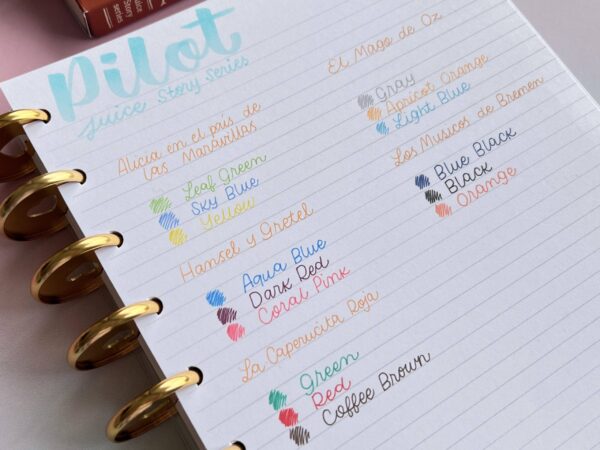 Story
series
Pilot
Juice Story Series
Alicia en el país de
las Maravillas
Leaf Green
Sky Blue
Yellow
Hansel y Gretel
Aqua Blue
Dark Red
Coral Pink
La Caperucita Roja
Green
Red
Coffee Brown
El Mago de Oz
Gray
Apricot Orange
Light Blue
Los Musicos de Bremen
Blue Black
Black
Orange